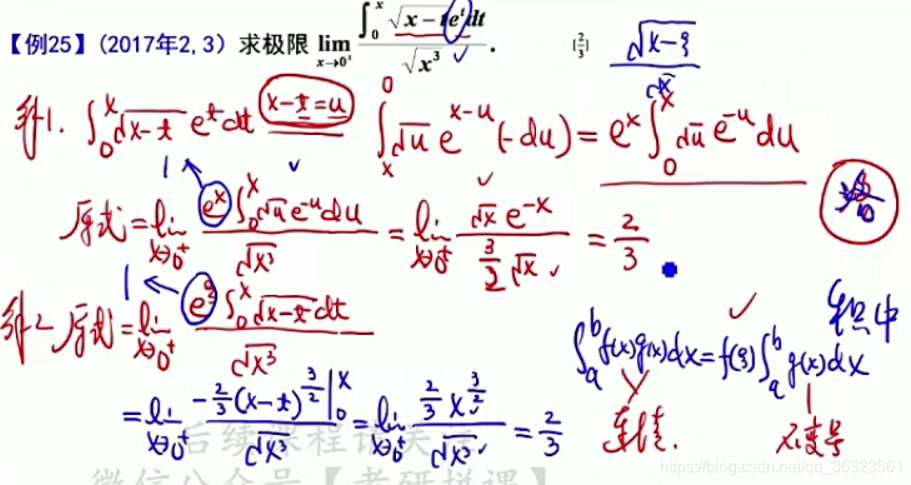 【例25】(2017年2,3) 求极限 lim_{x→0⁺} ∫₀ˣ √(x−t) eᵗ dt / √(x³) . [2/3] √(x−ξ) / √x
解1. ∫₀ˣ √(x−t) eᵗ dt x−t=u ∫ₓ⁰ √u e^{x−u} (−du) = eˣ ∫₀ˣ √u e^{−u} du
1
原式 = lim_{x→0⁺} eˣ ∫₀ˣ √u e^{−u} du / √(x³) = lim_{x→0⁺} √x e^{−x} / (3/2 √x) = 2/3
1
解2 原式 = lim_{x→0⁺} e^ξ ∫₀ˣ √(x−t) dt / √(x³)
积分中
∫ₐᵇ f(x)g(x)dx = f(ξ) ∫ₐᵇ g(x)dx
= lim_{x→0⁺} −2/3 (x−t)^{3/2} |₀ˣ / √(x³) = lim_{x→0⁺} 2/3 x^{3/2} / √(x³) = 2/3
连续. 不变号
后续课程请关
微信公众号【考研拼课】
https://blog.csdn.net/qq_36323561